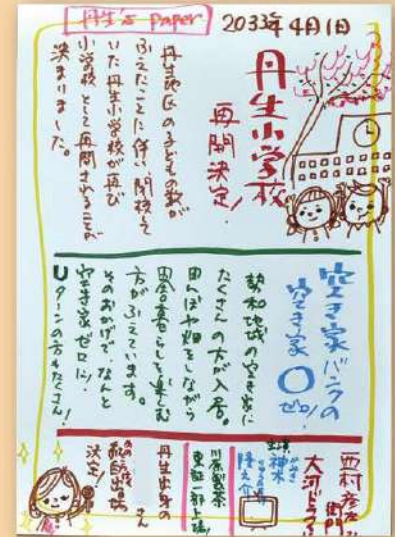 丹生's paper
2033年4月1日
丹生小学校
再開決定!
丹生地区の子どもの数が
ふえたことに伴い、閉校して
いた丹生小学校が再び
小学校として再開されることが
決まりました。
空き家バンクの
空き家0
ゼロ!
勢和地域の空き家に
たくさんの方が入居。
田んぼや畑をしながら
田舎暮らしを楽しむ
方がふえています。
そのおかげで、なんと
空き家ゼロに!
Uターンの方もたくさん!
西村彦左衛門
大河ドラマ
主演
神木
隆之介
川原製茶
東証一部上場!
丹生出身の
さん
出場
決定!